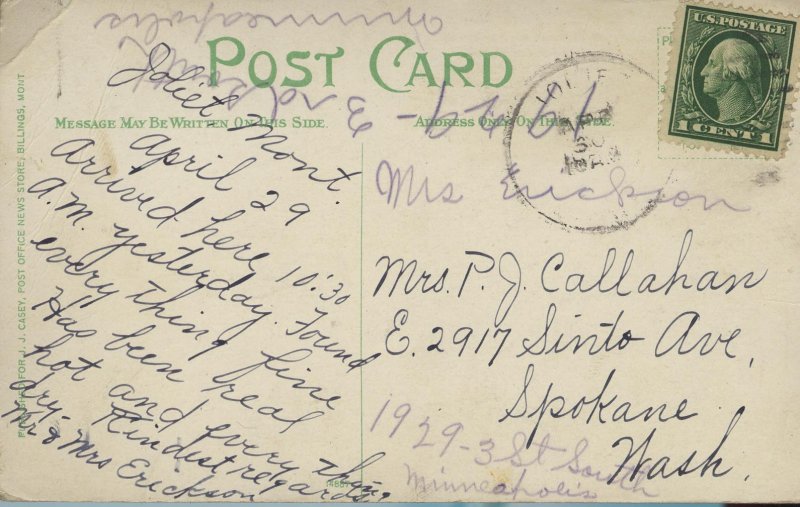 POST CARD
MESSAGE MAY BE WRITTEN ON THIS SIDE.
ADDRESS ONLY ON THIS SIDE.
U.S. POSTAGE
1 CENT 1
JOLIE
APR
30
Joliet Mont.
April 29
Arrived here 10:30
A.M. yesterday. Found
every thing fine
Has been real
hot and every thing
dry. Kindest regards
Mr & Mrs Erickson
Mrs Erickson
Mrs. P. J. Callahan
E. 2917 Sinto Ave,
Spokane
Wash.
1929-3 St South
Minneapolis
Minneapolis
FOR J. J. CASEY, POST OFFICE NEWS STORE, BILLINGS, MONT.